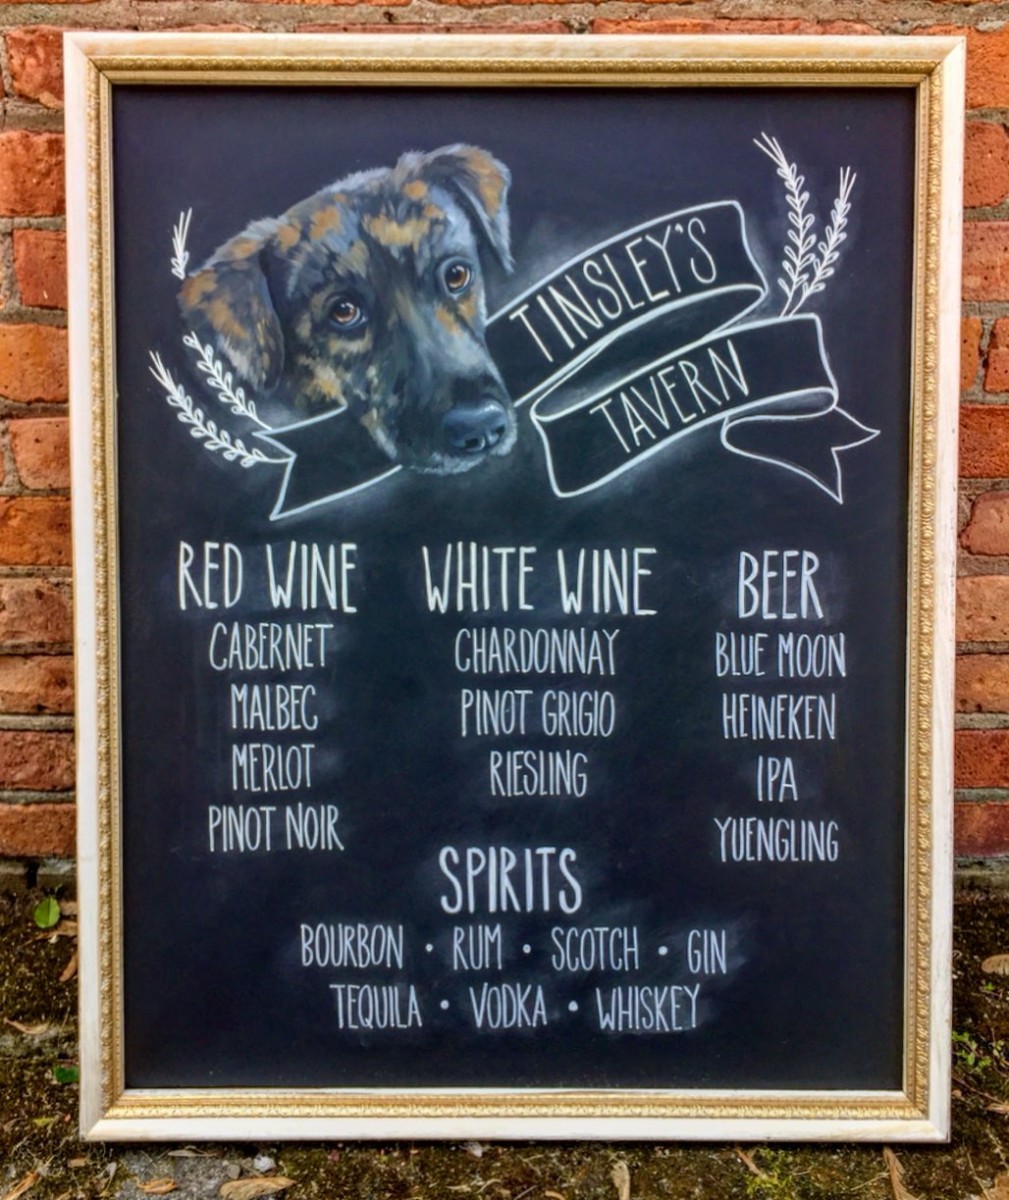 TINSLEY'S
TAVERN
RED WINE
CABERNET
MALBEC
MERLOT
PINOT NOIR
WHITE WINE
CHARDONNAY
PINOT GRIGIO
RIESLING
BEER
BLUE MOON
HEINEKEN
IPA
YUENGLING
SPIRITS
BOURBON • RUM • SCOTCH • GIN
TEQUILA • VODKA • WHISKEY